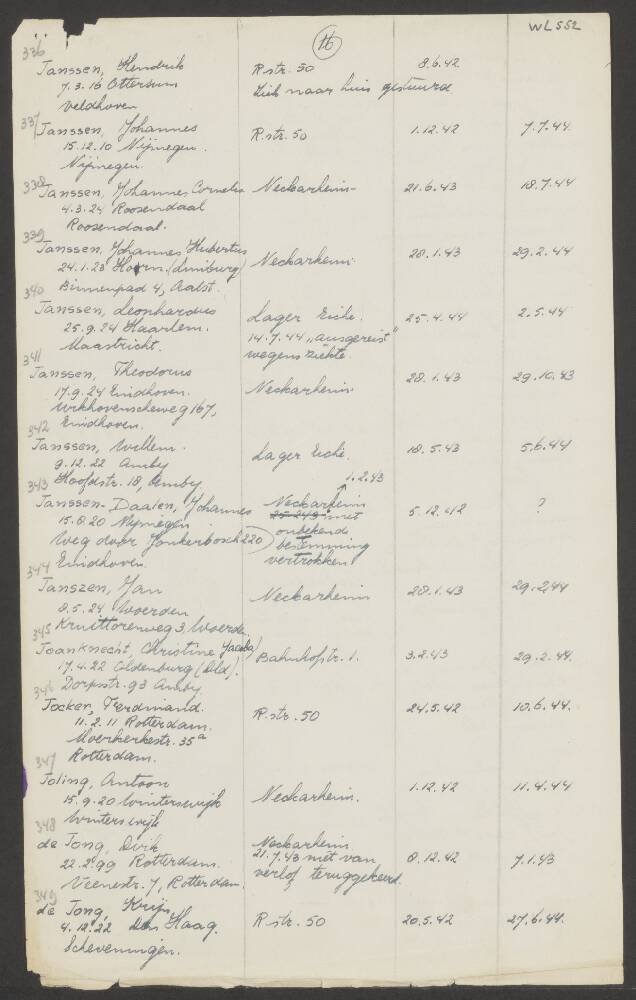 16
WL 552
336
Janssen, Hendrik R.str. 50 8.6.42
7.3.16 Ottersum Ziek naar huis gestuurd
Veldhoven
337
Janssen, Johannes R.str. 50 1.12.42 7.7.44
15.12.10 Nijmegen.
Nijmegen.
338
Janssen, Johannes Cornelis Neckarheim 21.6.43 18.7.44
4.3.24 Roosendaal
Roosendaal.
339
Janssen, Johannes Hubertus Neckarheim 28.1.43 29.2.44
24.1.23 Horn. (Limburg)
Binnenpad 4, Aalst.
340
Janssen, Leonhardus Lager Eiche. 25.4.44 2.5.44
25.9.24 Haarlem. 14.7.44 „ausgereist"
Maastricht. wegens ziekte.
341
Janssen, Theodorus Neckarheim 28.1.43 29.10.43
17.9.24 Eindhoven.
Urkhovenscheweg 167,
Eindhoven.
342
Janssen, Willem. Lager Eiche. 18.5.43 5.6.44
9.12.22 Amby
Hoofdstr. 18, Amby.
343 1.2.43
Janssen-Daalen, Johannes Neckarheim 5.12.42 ?
15.8.20 Nijmegen met
Weg door Jonkerbosch 220 onbekende
Eindhoven. bestemming
vertrokken
344
Janszen, Jan Neckarheim 28.1.43 29.2.44
8.5.24 Woerden
Kruittorenweg 3, Woerden.
345
Joanknecht, Christine Jacoba) Bahnhofstr. 1. 3.2.43 29.2.44.
17.4.22 Oldenburg (Old).
Dorpsstr. 93 Amby.
346
Jocker, Ferdinand. R.str. 50 24.5.42 10.6.44.
11.2.11 Rotterdam.
Moerkerkestr. 35a
Rotterdam.
347
Joling, Antoon Neckarheim. 1.12.42 11.4.44
15.9.20 Winterswijk
Winterswijk
348
de Jong, Dirk Neckarheim 8.12.42 7.1.43
22.2.99 Rotterdam. 21.7.43 niet van
Veenestr. 7, Rotterdam. verlof teruggekeerd.
349
de Jong, Krijn R.str. 50 20.5.42 27.6.44.
4.12.22 Den Haag.
Scheveningen.